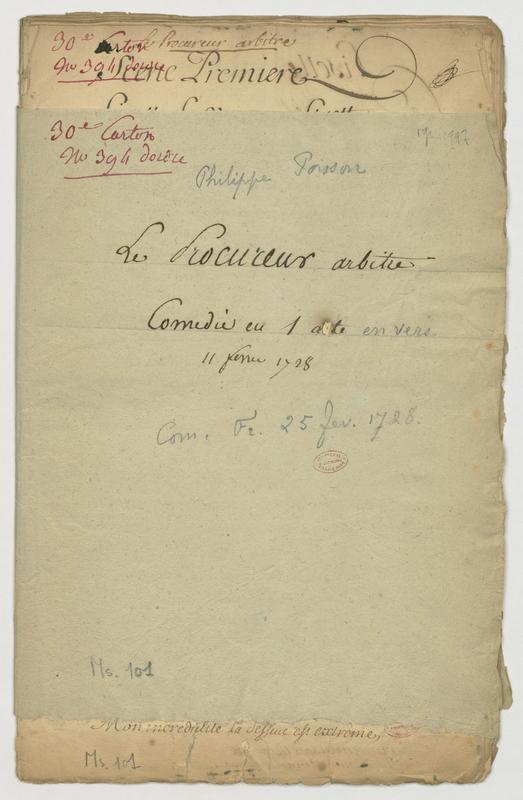 30e Carton Le Procureur arbitre
No 394 d'ordre
Scene Premiere
30e Carton
No 394 d'ordre
Philippe Poisson
Le Procureur arbitre
Comedie en 1 acte en vers
11 fevrier 1728
Com. Fr. 25 fev. 1728.
Ms. 101
Mon incredulité la dessus est extrême,
Ms. 101